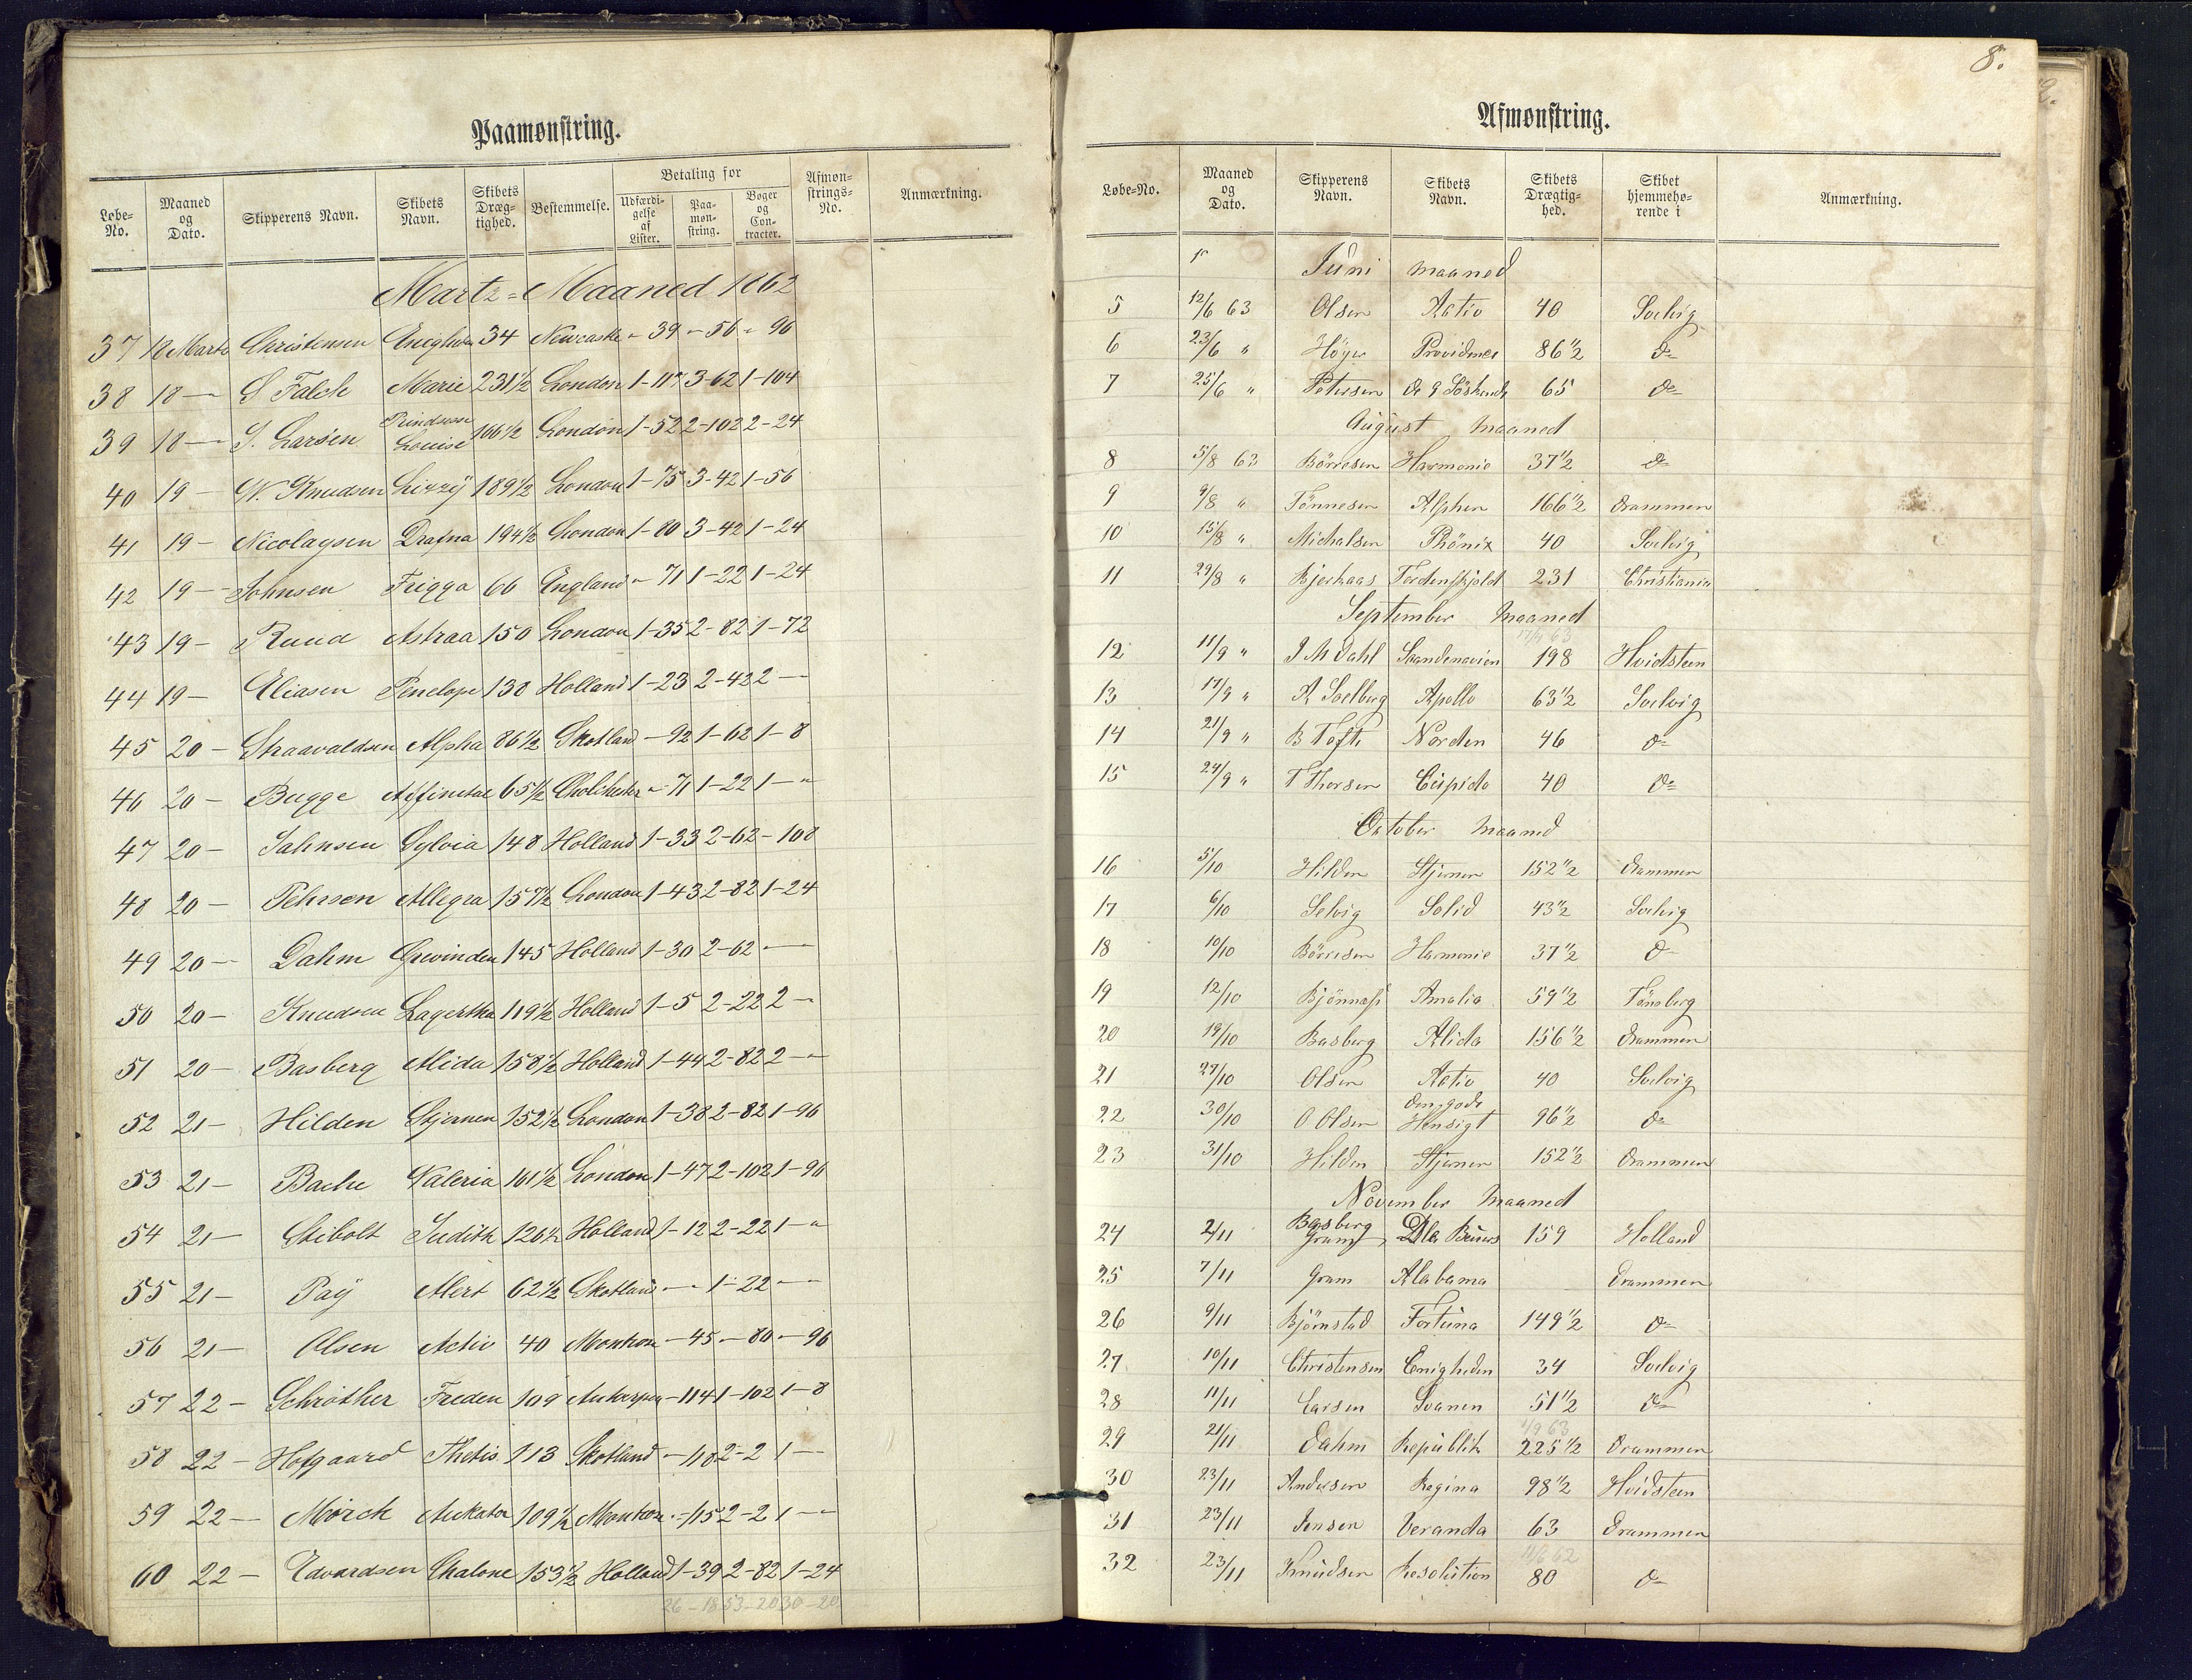 Paamønstring.
Løbe-No. Maaned og Dato. Skipperens Navn. Skibets Navn. Skibets Drægtighed. Bestemmelse. Betaling for Udfærdigelse af Lister. Paamønstring. Bøger og Contracter. Afmønstrings-No. Anmærkning.
Martz=Maaned 1862
37 18 Martz Christensen Enighe 34 Newcastle " 39 - 56 " 96
38 18 — S Falch Marie 231½ London 1-117 3-62 1-104
39 18 — S. Larsen Prindsesse Louise 166½ London 1-52 2-102 2-24
40 19 — N. Knudsen Lizzÿ 189½ London 1-75 3-42 1-56
41 19 — Nicolaysen Drafna 194½ London 1-80 3-42 1-24
42 19 — Johnsen Frigga 66 England " 71 1-22 1-24
43 19 — Ruud Astraa 150 London 1-35 2-82 1-72
44 19 — Eliasen Penelope 138 Holland 1-23 2-42 2 —
45 20 — Straavaldsen Alpha 86½ Skotland — 92 1-62 1-8
46 20 — Bugge 65½ Cholchester " 71 1-22 1 — "
47 20 — Jahnsen Sylvia 148 Holland 1-33 2-62 - 108
48 20 — Pehrsen Allegra 157½ London 1-43 2-82 1-24
49 20 — Dahm Grevinden 145 Holland 1-30 2-62 —
50 20 — Knudsen Lagertha 119½ Holland 1-5 2-22 2 —
51 20 — Basberg Alida 158½ Holland 1-44 2-82 2 — "
52 21 — Hilden Stjernen 152½ London 1-38 2-82 1-96
53 21 — Bache Valeria 161½ London 1-47 2-102 1-96
54 21 — Stibolt Judith 126½ Holland 1-12 2-22 1 — "
55 21 — Paÿ Alert 62½ Skotland — 1-22 —
56 21 — Olsen Activ 40 Montrose — 45 — 80 — 96
57 22 — Schrøther Freden 109 Antverpen — 114 1-102 1-8
58 22 — Hofgaard Thetis 113 Skotland — 118 2-2 1 —
59 22 — Mørch 109½ Montrose — 115 2-2 1 —
60 22 — Edvardsen Chalone 153½ Holland 1-39 2-82 1-24
26-18 53-20 30-20
8.
Afmønstring.
Løbe-No. Maaned og Dato. Skipperens Navn. Skibets Navn. Skibets Drægtighed. Skibet hjemmehørende i Anmærkning.
Juni maaned
5 12/6 63 Olsen Activ 40 Svelvig
6 23/6 " Høyer Providencer 86½ do
7 25/6 " Petersen De 9 Söskende 65 do
August maaned
8 5/8 63 Börresen Harmonie 37½ do
9 9/8 " Tönnesen Alphen 166½ Drammen
10 15/8 " Michalsen Phönix 40 Svelvig
11 29/8 " Bjerkaas Tordenskjold 231 Christiania
September maaned
12 11/9 " J M Dahl Scandenavien 198 Hvidsteen
13 17/9 " A Soelberg Apollo 63½ Svelvig
14 21/9 " B Tofte Norden 46 do
15 24/9 " T Thorsen Cupido 40 do
October maaned
16 5/10 Hilden Stjernen 152½ Drammen
17 6/10 Selvig Solid 43½ Svelvig
18 10/10 Börresen Harmonie 37½ do
19 12/10 Bjönnæss Amalia 59½ Tönsberg
20 19/10 Basberg Alida 156½ Drammen
21 27/10 Olsen Activ 40 Svelvig
22 30/10 O Olsen Den gode Hensigt 96½ do
23 31/10 Hilden Stjernen 152½ Drammen
November maaned
24 2/11 Basberg Gram 159 Holland
25 7/11 Gram Alabama Drammen
26 9/11 Björnstad Fortuna 149½ do
27 10/11 Christensen Enigheden 34 Svelvig
28 11/11 Larsen Svanen 51½ do
29 21/11 Dahm Republik 225½ Drammen
30 23/11 Andersen Regina 98½ Hvidsteen
31 23/11 Jensen Veranda 63 Drammen
32 23/11 Knudsen Resolution 80 do